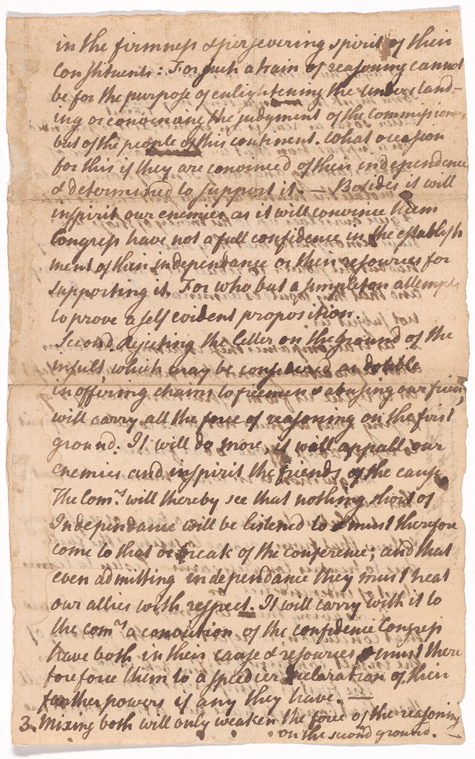 in the firmness & persevering spirit of their
Constituents: For such a train of reasoning cannot
be for the purpose of enlightening the understand-
ing or convincing the judgment of the commissioners
but of the people of this continent. What occasion
for this if they are convinced of their independence
& determined to support it. — Besides it will
inspirit our enemies as it will convince them
Congress have not a full confidence in the establish
ment of their independance or their resources for
supporting it. For who but a simpleton attempts
to prove a self evident proposition.
Second. Rejecting the letter on the ground of the
insult which may be considered as double
in offering chains to freemen & abusing our friend,
will carry all the force of reasoning on the first
ground. It will do more, it will appall our
enemies and inspirit the friends of the cause
The Com.rs will thereby see that nothing short of
Independance will be listened to & must therefore
come to that or break of the conference; and that
even admitting independance they must treat
our allies with respect. It will carry with it to
the com.rs a conviction of the confidence Congress
have both in their cause & resources & must there
fore force them to a speedier declaration of their
farther powers if any they have. —
3. Mixing both will only weaken the force of the reasoning
on the second ground. —